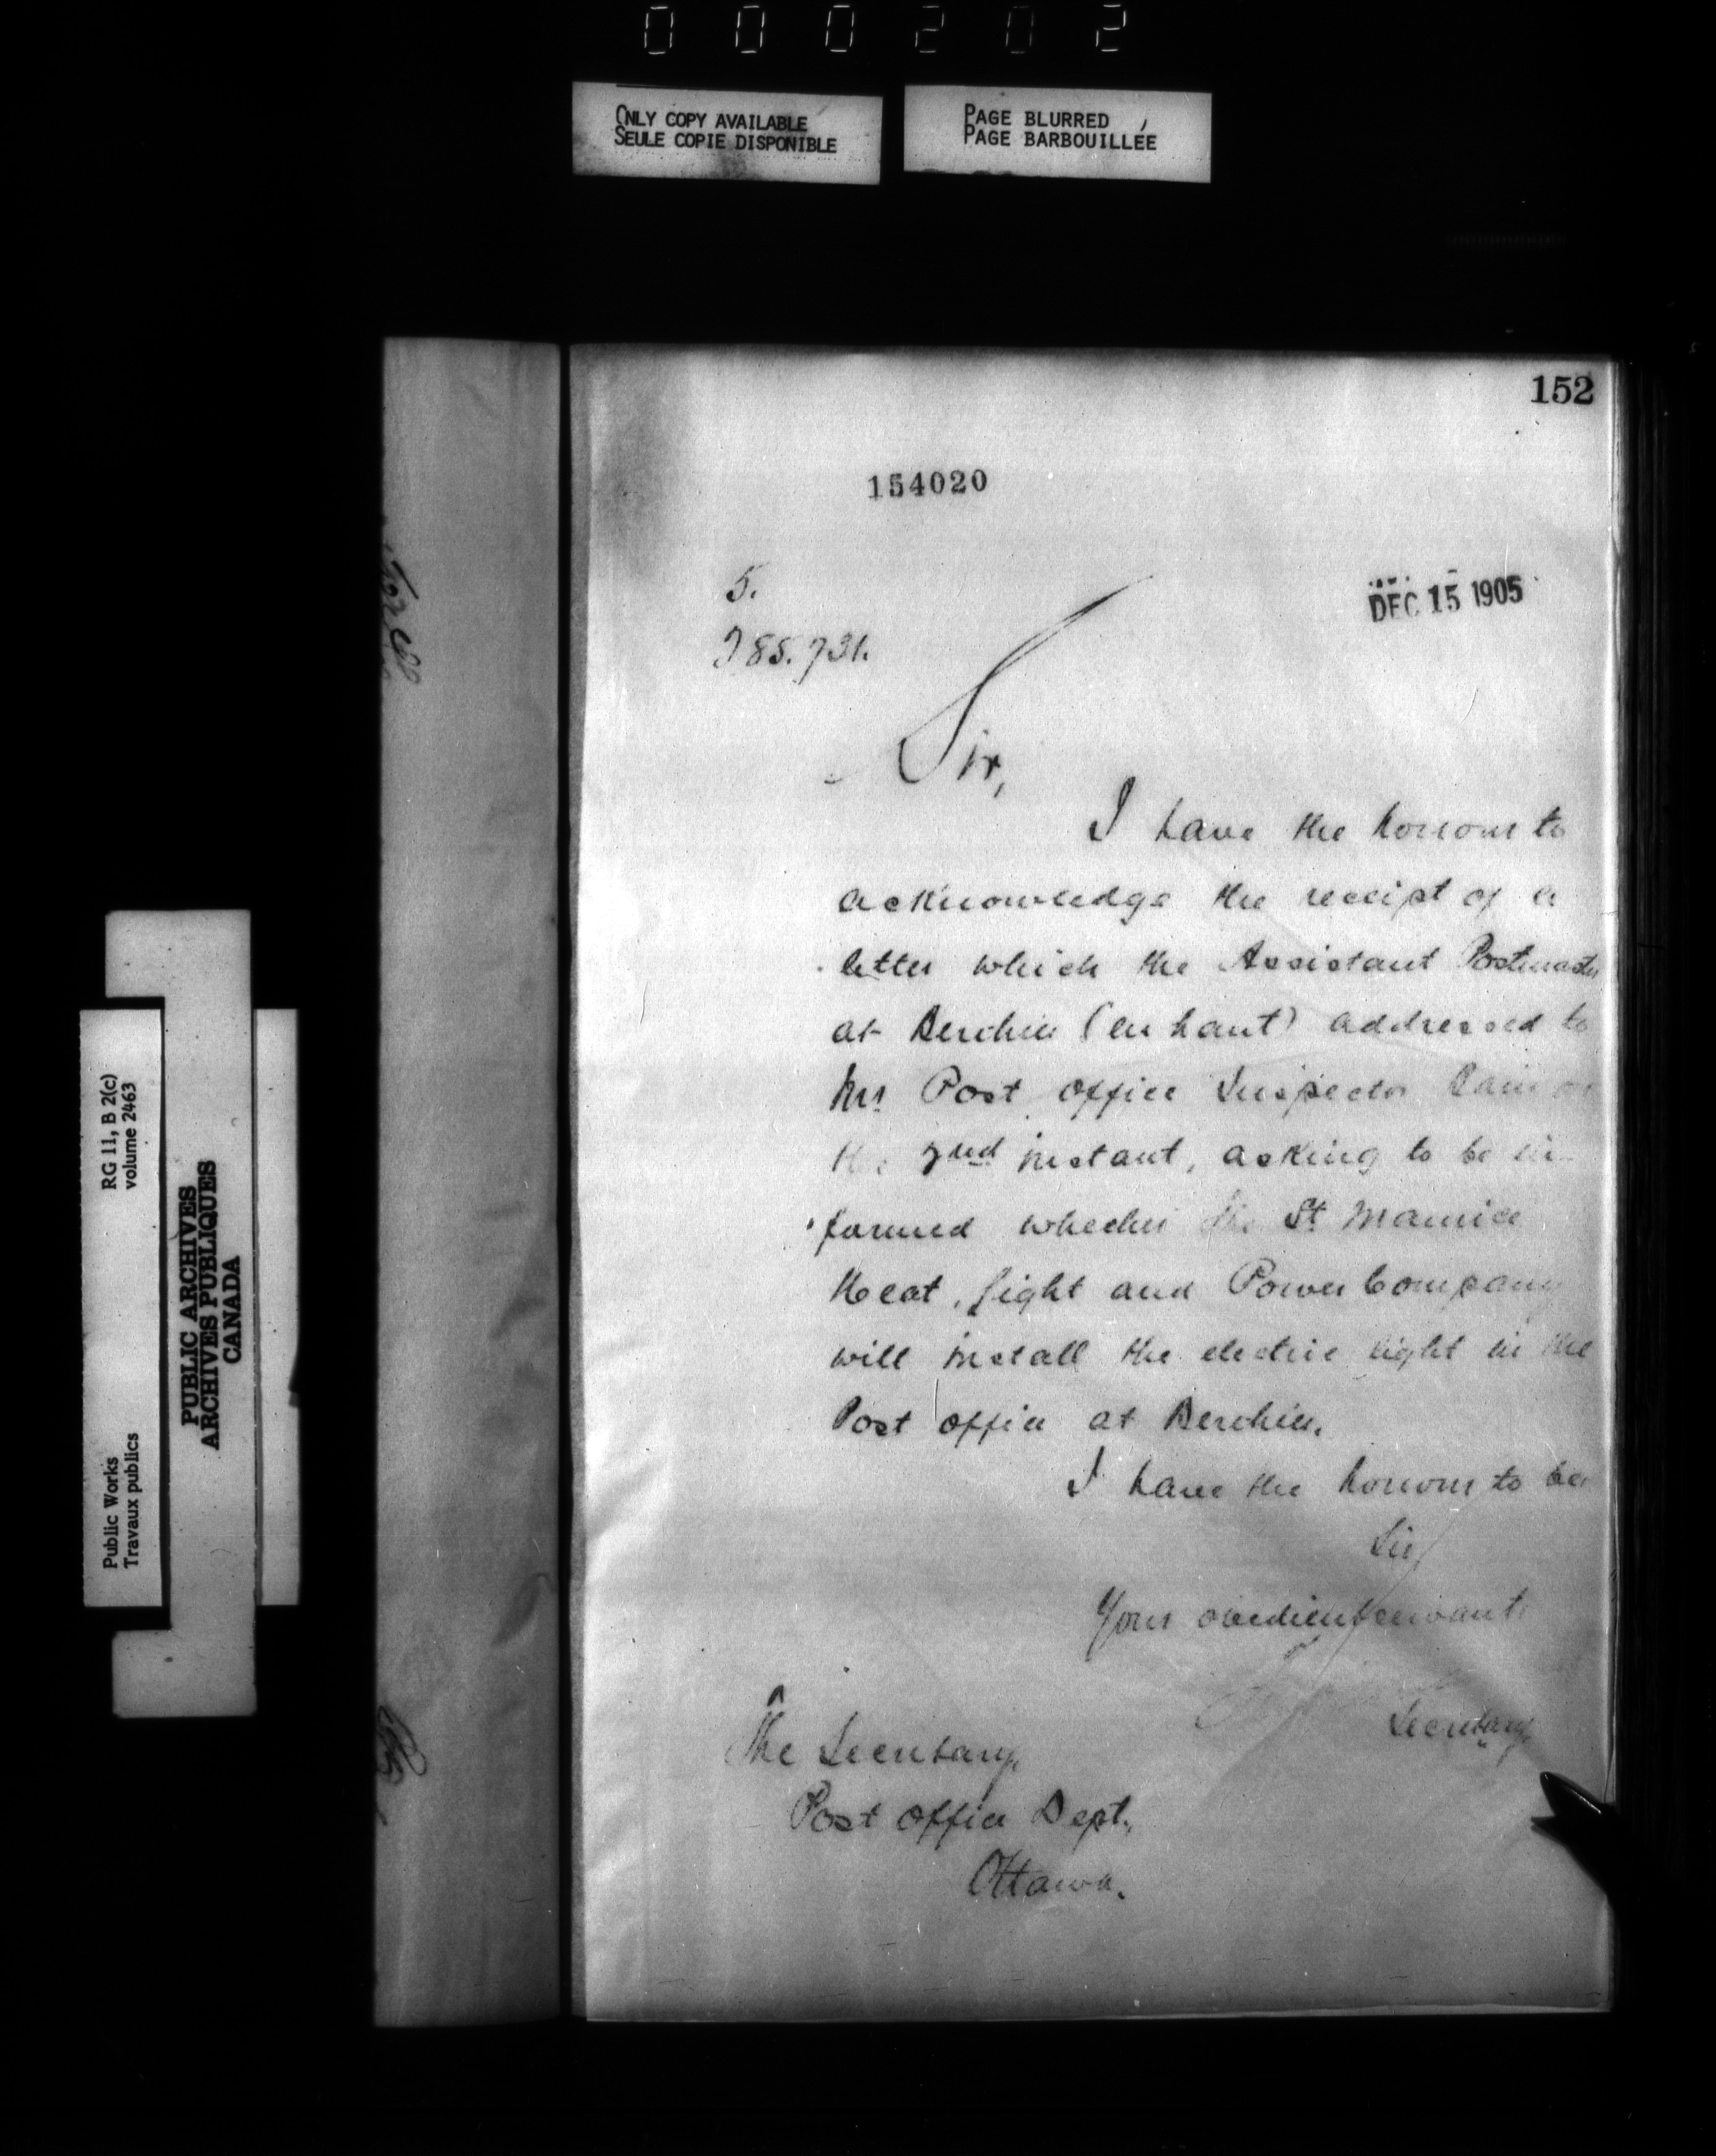 000202
ONLY COPY AVAILABLE
SEULE COPIE DISPONIBLE
PAGE BLURRED
PAGE BARBOUILLÉE
152
154020
DEC 15 1905
5.
785.731.
Sir,
I have the honour to
acknowledge the receipt of a
letter which the Assistant Postmaster
at Berthier (en haut) addressed to
Mr. Post Office Inspector
the 2nd instant, asking to be in-
formed whether the St Maurice
Heat, Light and Power Company
will install the electric light in the
Post Office at Berthier.
I have the honour to be
Sir,
Your obedient servant
Secretary
The Secretary,
Post Office Dept.,
Ottawa.
RG 11, B 2(c)
volume 2463
PUBLIC ARCHIVES
ARCHIVES PUBLIQUES
CANADA
Public Works
Travaux publics